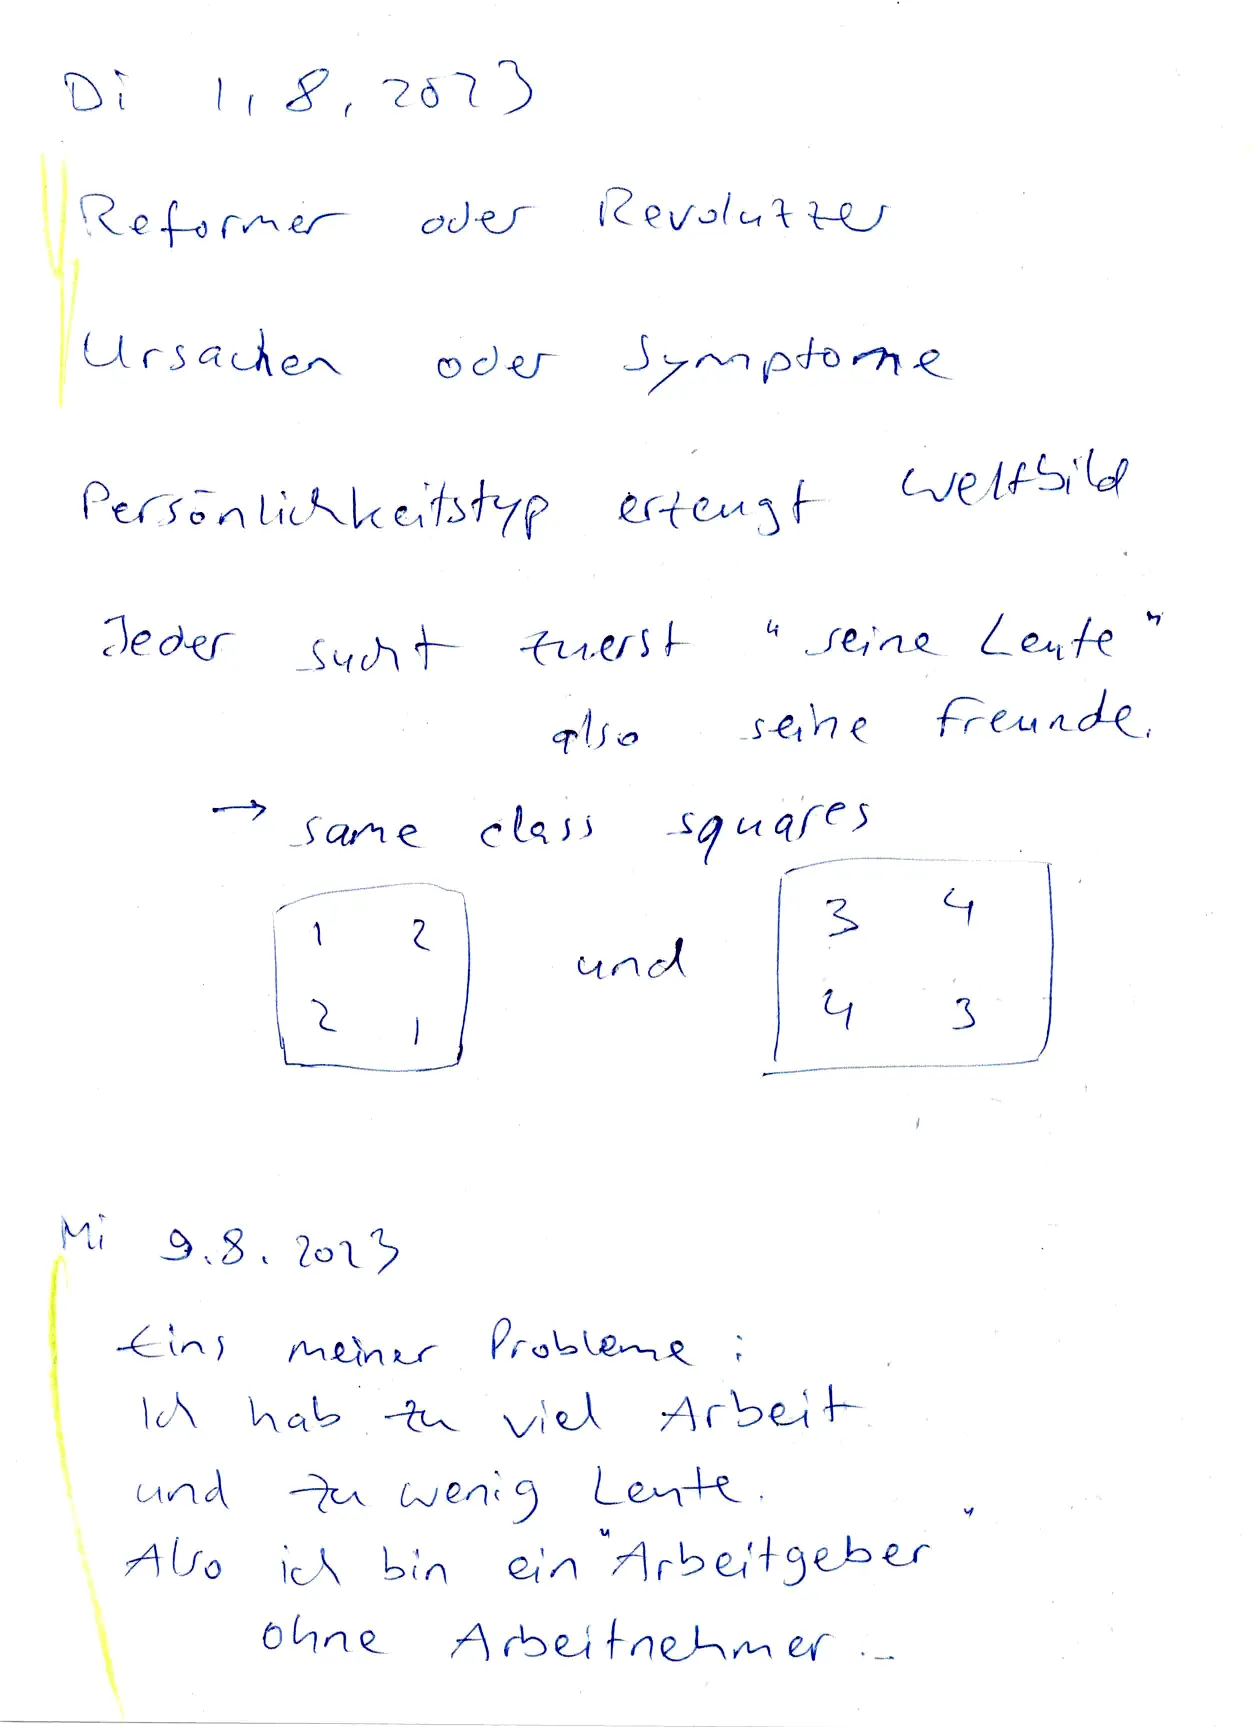 Di 1.8.2023
Reformer oder Revoluzzer
Ursachen oder Symptome
Persönlichkeitstyp erzeugt Weltbild
Jeder sucht zuerst "seine Leute"
also seine Freunde.
→ same class squares
1 2
2 1
und
3 4
4 3
Mi 9.8.2023
Eins meiner Probleme:
Ich hab zu viel Arbeit
und zu wenig Leute.
Also ich bin ein "Arbeitgeber"
ohne Arbeitnehmer...